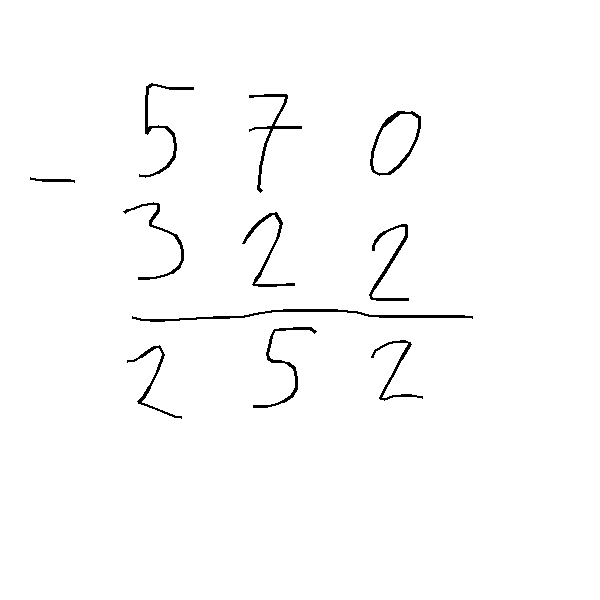 5 7 0
-
3 2 2
2 5 2